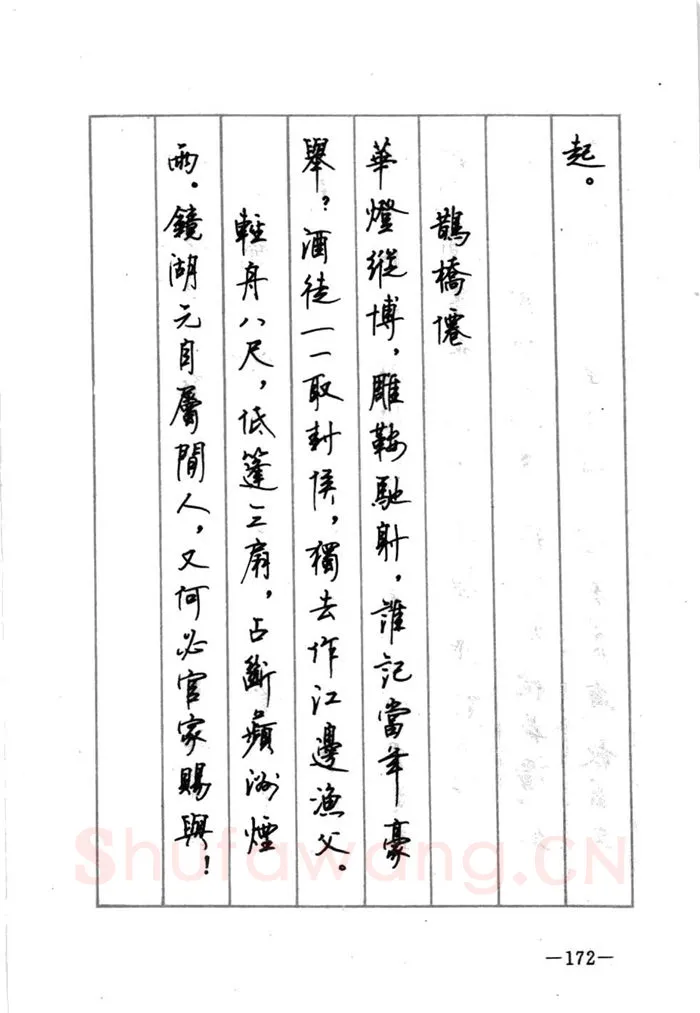 起。
鵲橋僊
華燈縱博，雕鞍馳射，誰記當年豪
舉？酒徒一一取封侯，獨去作江邊漁父。
輕舟八尺，低篷三扇，占斷蘋洲煙
雨。鏡湖元自屬閒人，又何必官家賜與！
Shufawang.CN
—172—